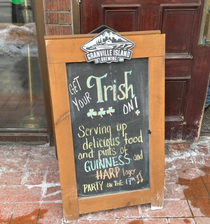 GRANVILLE ISLAND
BREWING
GET
YOUR
Irish
ON!
Serving up
delicious food
and pints of
GUINNESS and
HARP lager
PARTY ON THE 17th